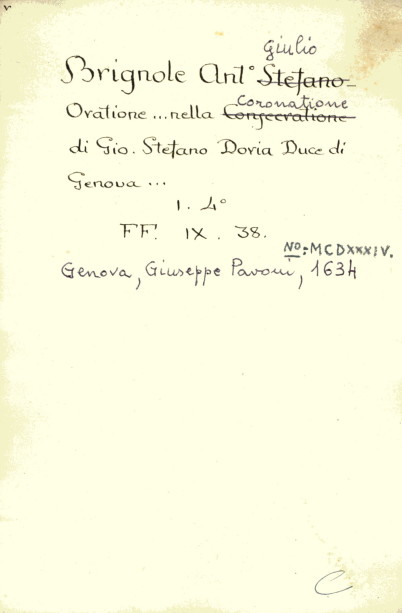 giulio
Brignole Ant° Stefano
coronatione
Oratione ... nella Consecratione
di Gio. Stefano Doria Duce di
Genova ...
1. 4°
FF. IX. 38.
NO:MCDXXXIV.
Genova, Giuseppe Pavoni, 1634
C